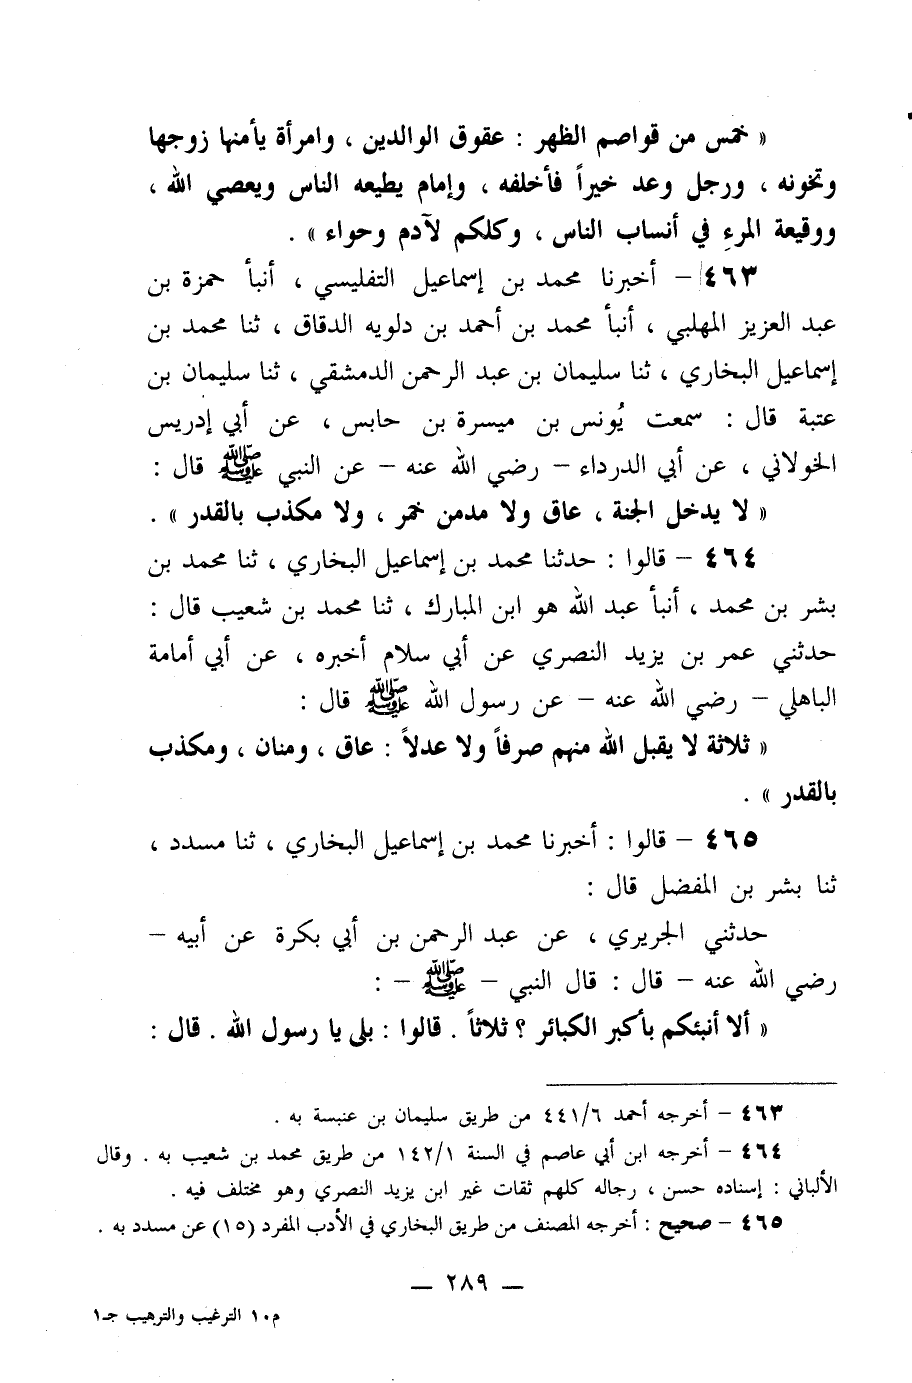 « خمس من قواصم الظهر : عقوق الوالدين ، وامرأة يأمنها زوجها
وتخونه ، ورجل وعد خيراً فأخلفه ، وإمام يطيعه الناس ويعصي الله ،
ووقيعة المرءِ في أنساب الناس ، وكلكم لآدم وحواء » .
٤٦٣ – أخبرنا محمد بن إسماعيل التفليسي ، أنبأ حمزة بن
عبد العزيز المهلبي ، أنبأ محمد بن أحمد بن دلويه الدقاق ، ثنا محمد بن
إسماعيل البخاري ، ثنا سليمان بن عبد الرحمن الدمشقي ، ثنا سليمان بن
عتبة قال : سمعت يُونس بن ميسرة بن حابس ، عن أبي إدريس
الخولاني ، عن أبي الدرداء – رضي الله عنه – عن النبي ﷺ قال :
« لا يدخل الجنة ، عاق ولا مدمن خمر ، ولا مكذب بالقدر » .
٤٦٤ – قالوا : حدثنا محمد بن إسماعيل البخاري ، ثنا محمد بن
بشر بن محمد ، أنبأ عبد الله هو ابن المبارك ، ثنا محمد بن شعيب قال :
حدثني عمر بن يزيد النصري عن أبي سلام أخبره ، عن أبي أمامة
الباهلي – رضي الله عنه – عن رسول الله ﷺ قال :
« ثلاثة لا يقبل الله منهم صرفاً ولا عدلاً : عاق ، ومنان ، ومكذب
بالقدر » .
٤٦٥ – قالوا : أخبرنا محمد بن إسماعيل البخاري ، ثنا مسدد ،
ثنا بشر بن المفضل قال :
حدثني الجريري ، عن عبد الرحمن بن أبي بكرة عن أبيه –
رضي الله عنه – قال : قال النبي – ﷺ – :
« ألا أنبئكم بأكبر الكبائر ؟ ثلاثاً . قالوا : بلى يا رسول الله . قال :
٤٦٣ – أخرجه أحمد ٤٤١/٦ من طريق سليمان بن عنبسة به .
٤٦٤ – أخرجه ابن أبي عاصم في السنة ١٤٢/١ من طريق محمد بن شعيب به . وقال
الألباني : إسناده حسن ، رجاله كلهم ثقات غير ابن يزيد النصري وهو مختلف فيه .
٤٦٥ – صحيح : أخرجه المصنف من طريق البخاري في الأدب المفرد (١٥) عن مسدد به .
– ٢٨٩ –
م١٠ الترغيب والترهيب جـ١